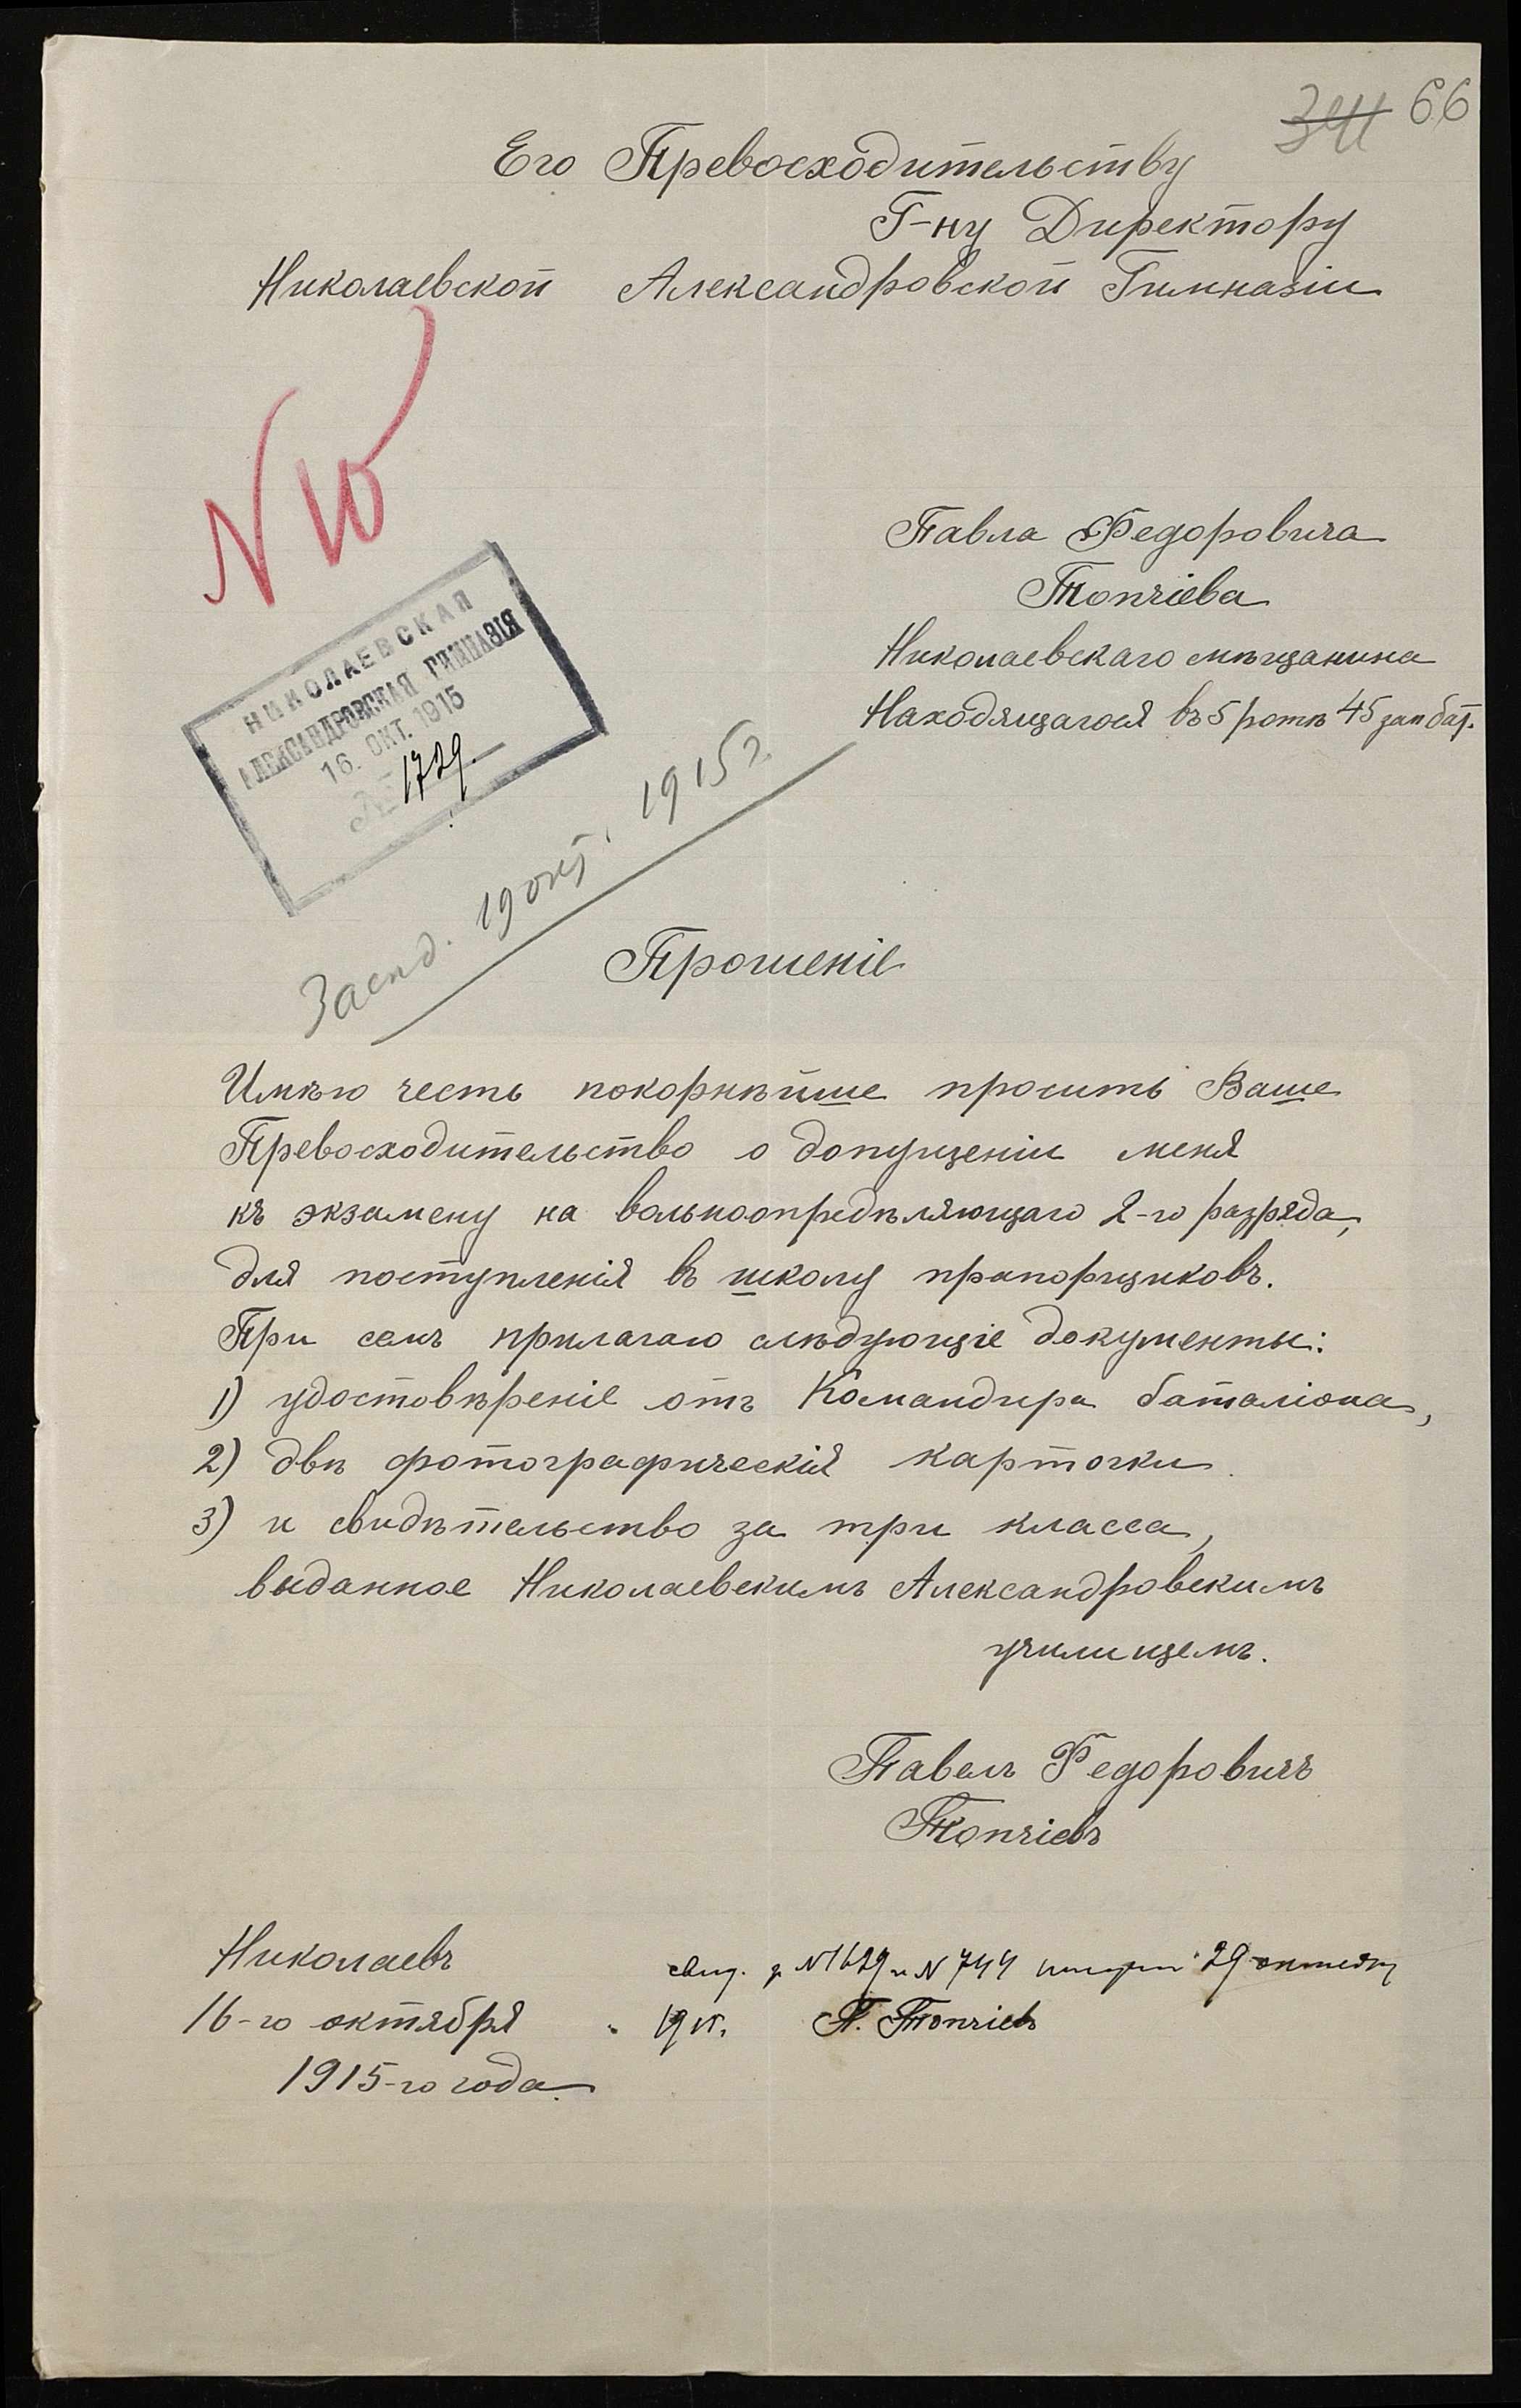 66
Его Превосходительству
Г-ну Директору
Николаевской Александровской Гимназіи
N 10
Павла Федоровича
Топчіева
Николаевскаго мѣщанина
Находящагося въ 5 ротѣ 45 зап бат.
НИКОЛАЕВСКАЯ
АЛЕКСАНДРОВСКАЯ ГИМНАЗІЯ
16. ОКТ. 1915
№ 1729.
Засѣд. 19 окт. 1915 г.
Прошеніе
Имѣю честь покорнѣйше просить Ваше
Превосходительство о допущеніи меня
къ экзамену на вольноопредѣляющаго 2-го разряда,
для поступленія въ школу прапорщиковъ.
При семъ прилагаю слѣдующіе документы:
1) удостовѣреніе отъ Командира баталіона,
2) двѣ фотографическія карточки
3) и свидѣтельство за три класса,
выданное Николаевскимъ Александровскимъ
училищемъ.
Павелъ Федоровичъ
Топчіевъ
Николаевъ
16-го октября
1915-го года.
свид. N 1629 и N 744 29 октября
1915. П. Топчіевъ